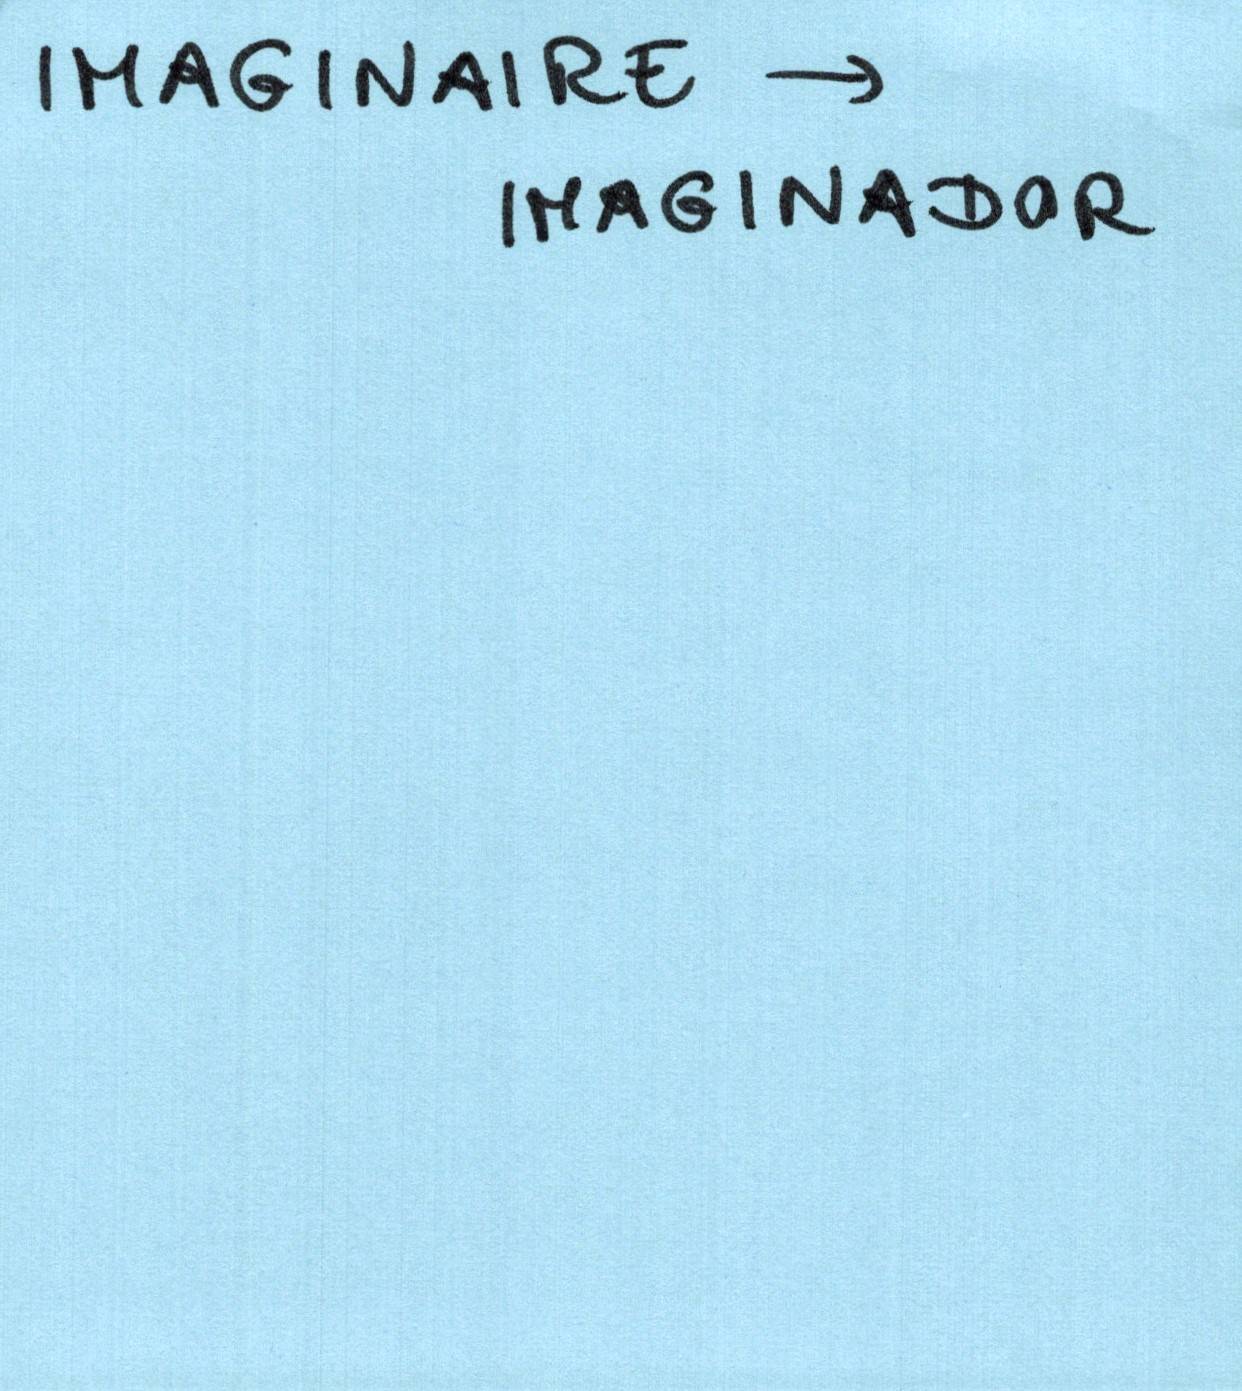 IMAGINAIRE →
IMAGINADOR